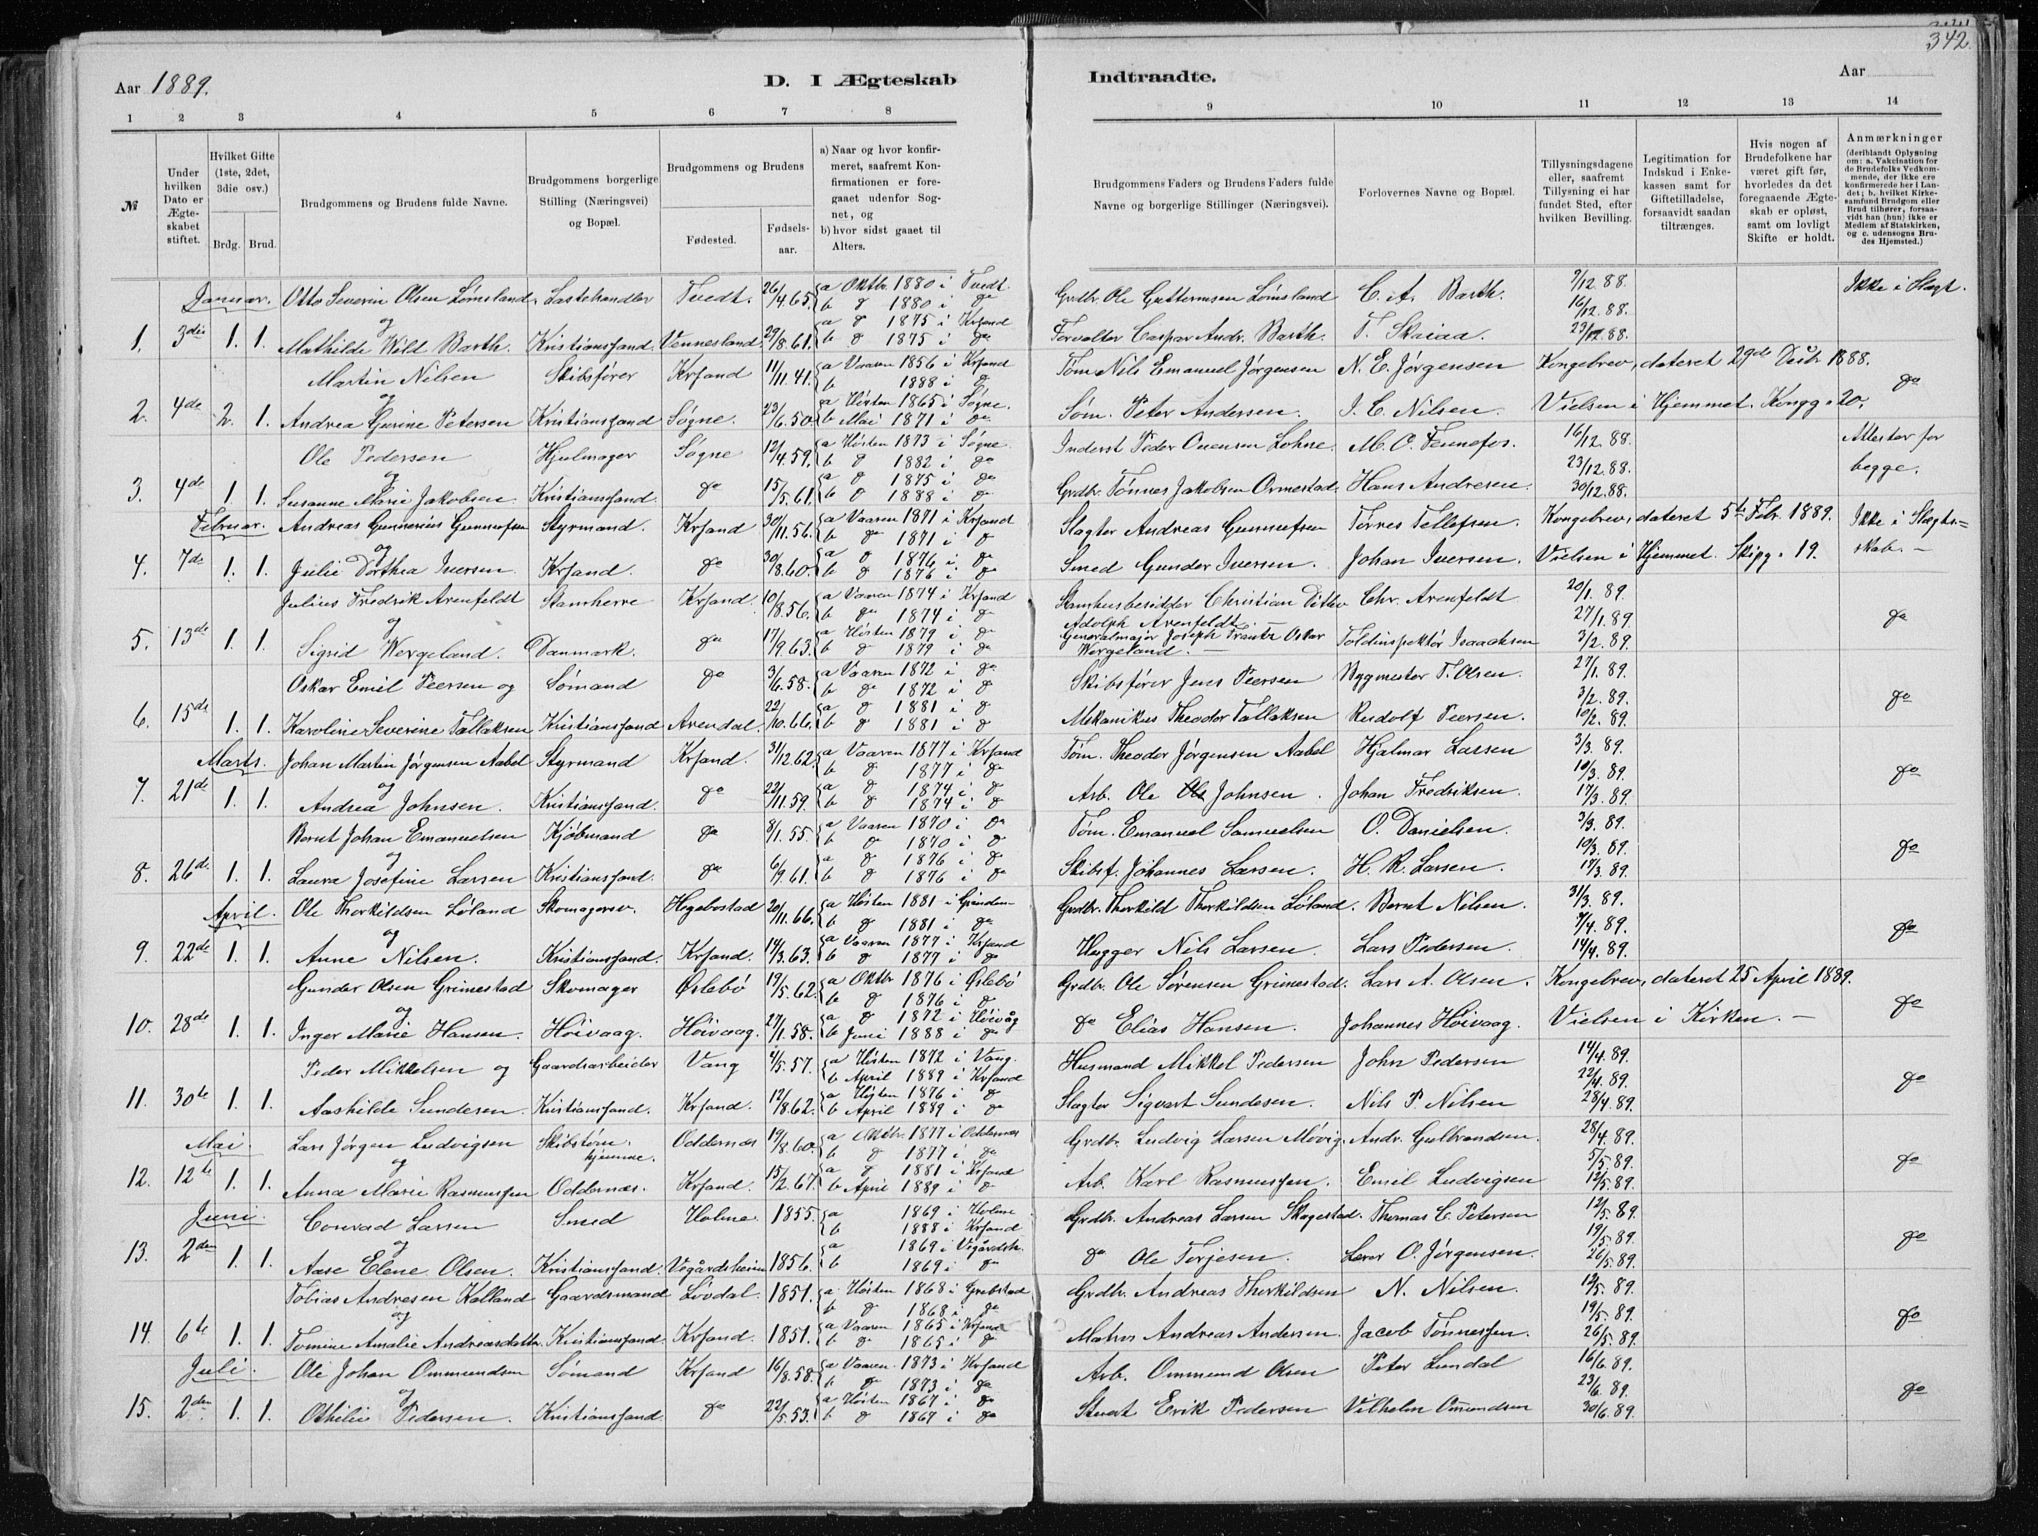 342.
Aar 1889.
D. I Ægteskab
Indtraadte.
Aar
1 2 3 4 5 6 7 8
9 10 11 12 13 14
№
Under hvilken Dato er Ægteskabet stiftet.
Hvilket Gifte (1ste, 2det, 3die osv.)
Brdg. Brud.
Brudgommens og Brudens fulde Navne.
Brudgommens borgerlige Stilling (Næringsvei) og Bopæl.
Brudgommens og Brudens
Fødested. Fødselsaar.
a) Naar og hvor konfirmeret, saafremt Konfirmationen er foregaaet udenfor Sognet, og
b) hvor sidst gaaet til Alters.
Brudgommens Faders og Brudens Faders fulde Navne og borgerlige Stillinger (Næringsvei).
Forlovernes Navne og Bopæl.
Tillysningsdagene eller, saafremt Tillysning ei har fundet Sted, efter hvilken Bevilling.
Legitimation for Indskud i Enkekassen samt for Giftetilladelse, forsaavidt saadan tiltrænges.
Hvis nogen af Brudefolkene har været gift før, hvorledes da det foregaaende Ægteskab er opløst, samt om lovligt Skifte er holdt.
Anmærkninger (deriblandt Oplysning om: a. Vakcination for de Brudefolks Vedkommende, der ikke ere konfirmerede her i Landet; b. hvilket Kirkesamfund Brudgom eller Brud tilhører, forsaavidt han (hun) ikke er Medlem af Statskirken, og c. udensogns Brudes Hjemsted.)
Januar. Otto Severin Olsen Lømsland. Lastehandler Tvedt. 26/4 65. a Oktbr 1880 i Tvedt b do 1880 i do Grdbr Ole Guttormsen Lømsland C. A. Barth. 9/12.88. 16/12.88. Ikke i Slægt.
1. 3die 1. 1. og Mathilde Wild Barth. Kristianssand Vennesland. 29/8.61. a do 1875 i Krsand b do 1875 i do Forvalter Caspar Andr. Barth. T. Skaiaa. 23/12.88.
Martin Nilsen Skibsfører Krsand 11/11.41. a Vaaren 1856 i Krsand b 1888 i do Tøm Nils Emanuel Jørgensen N. E. Jørgensen Kongebrev, dateret 29de Decbr 1888. do
2. 4de 2. 1. og Andrea Gurine Petersen Kristianssand Søgne. 23/6.50. a Høsten 1865 i Søgne. b Mai 1871 i do Søm. Peter Andersen. J. C. Nilsen. Vielsen i Hjemmet. Kongg. 20.
Ole Pedersen Hjulmager Søgne 12/4.59. a Høsten 1873 i Søgne b do 1882 i do Inderst Peder Ounsen Lohne. M. O. Fennefos. 16/12.88. 23/12.88. Attester for begge.
3. 4de 1. 1. og Susanne Marie Jakobsen Kristianssand. do 15/5.61. a do 1875 i do b do 1888 i do Grdbr. Tønnes Jakobsen Ormestad. Hans Andresen. 30/12.88.
Februar. Andreas Gunnerius Gunnufsen Styrmand. Krsand 30/11.56. a Vaaren 1871 i Krsand b do 1871 i do Slagter Andreas Gunnufsen Tørres Tellefsen. Kongebrev, dateret 5te Febr. 1889. Ikke i Slægtskab.
4. 7de 1. 1. og Julie Dorthea Iversen. Krsand. do 30/8.60. a do 1876 i do b do 1876 i do Smed Gunder Iversen. Johan Iversen. Vielsen i Hjemmet. Skipg. 19.
Julius Fredrik Arenfeldt Stamherre Krsand. 10/8.56. a Vaaren 1874 i Krsand b do 1874 i do Stamhusbesidder Christian Ditlev Adolph Arenfeldt. Chr. Arenfeldt 20/1.89. 27/1.89. do
5. 13de 1. 1. og Sigrid Wergeland. Danmark. do 17/9.63. a Høsten 1879 i do b do 1879 i do Generalmajor Joseph Frantz Oskar Wergeland. Toldinspektør Isaachsen 3/2.89.
Oskar Emil Peersen og Sømand do 3/6.58. a Vaaren 1872 i do b do 1872 i do Skibsfører Jens Peersen Bygmester T. Olsen. 27/1.89. 3/2.89. do
6. 15de 1. 1. Karoline Severine Tallaksen Kristianssand Arendal. 22/10.66. a do 1881 i do b do 1881 i do Mekanikus Theodor Tallaksen Rudolf Peersen. 10/2.89.
Marts. Johan Martin Jørgensen Aabel Styrmand Krsand. 31/12.62. a Vaaren 1877 i Krsand b do 1877 i do Tøm. Theodor Jørgensen Aabel Hjalmar Larsen 3/3.89. 10/3.89. do
7. 21de 1. 1. og Andrea Johnsen. Kristianssand. do 22/11.59. a do 1874 i do b do 1874 i do Arb. Ole Johnsen. Johan Fredriksen. 17/3.89.
Bernt Johan Emanuelsen Kjøbmand do 8/1.55. a Vaaren 1870 i do b do 1870 i do Tøm. Emanuel Samuelsen O. Danielsen. 3/3.89. 10/3.89. do
8. 26de 1. 1. og Laura Josefine Larsen Kristianssand. do 6/9.61. a do 1876 i do b do 1876 i do Skibsf. Johannes Larsen. H. R. Larsen. 17/3.89.
April. Ole Thorkildsen Løland Skomagersv. Hegebostad 20/11.66. a Høsten 1881 i b do 1881 i do Grdbr. Thorkild Thorkildsen Løland. Bernt Nilsen. 31/3.89. 7/4.89. do
9. 22de 1. 1. og Anne Nilsen. Kristianssand. Krsand. 14/3.63. a Vaaren 1877 i Krsand b do 1877 i do Hugger Nils Larsen. Lars Pedersen. 14/4.89.
Gunder Olsen Grimestad Skomager Øslebö 19/5.62. a Oktbr 1876 i Øslebö b do 1876 i do Grdbr. Ole Sørensen Grimestad. Lars A. Olsen. Kongebrev, dateret 25 April 1889. do
10. 28de 1. 1. og Inger Marie Hansen. Høivaag. Høivaag. 27/1.58. a do 1872 i Høivåg b Juni 1888 i do do Elias Hansen. Johannes Høivaag. Vielsen i Kirken.
Peder Mikkelsen og Gaardsarbeider Vang 4/5.57. a Høsten 1872 i Vang. b April 1889 i Krsand Husmand Mikkel Pedersen John Pedersen 14/4.89. 22/4.89. do
11. 30te 1. 1. Aashilde Sundesen. Kristianssand. Krsand. 12/8.62. a Høsten 1876 i do b April 1889 i do Slagter Sigvart Sundesen. Nils P. Nilsen 28/4.89.
Mai. Lars Jørgen Ludvigsen Skibstøm. hjemme. Oddernæs 19/8.60. a Oktbr. 1877 i Oddernæs b do 1877 i do Grdbr. Ludvig Larsen Møvig. Andr. Gulbrandsen. 28/4.89. 5/5.89. do
12. 12te 1. 1. og Anna Marie Rasmussen Oddernæs. Krsand. 15/2.67. a do 1881 i Krsand b April 1889 i do Arb. Karl Rasmussen. Emil Ludvigsen 12/5.89.
Juni. Conrad Larsen Smed Holme. 1855. a 1869 i Holme b 1888 i Krsand Grdbr. Andreas Larsen Skagestad. Thomas C. Petersen 12/5.89. 19/5.89. do
13. 2den 1. 1. og Aase Elene Olsen. Kristianssand. Vegårdsheien 1856. a 1869 i Vegårdsh. b 1869 i do do Ole Terjesen. Lærer O. Jørgensen. 26/5.89.
Tobias Andresen Kalland Gaardsmand Lövdal. 1851. a Høsten 1868 i b do 1868 i do Grdbr. Andreas Thorkildsen N. Nilsen. 12/5.89. 19/5.89. do
14. 6te 1. 1. og Tomine Amalie Andreasdatter Kristianssand. Krsand. 1851. a Vaaren 1865 i Krsand b do 1865 i do Matros Andreas Andersen Jacob Tønnessen. 26/5.89.
Juli. Ole Johan Ommundsen Sømand Krsand 16/8.58. a Vaaren 1873 i Krsand b do 1873 i do Arb. Ommund Olsen Peter Lundal 16/6.89. 23/6.89. do
15. 2den 1. 1. og Othilie Pedersen. Kristianssand. do 22/5.53. a Høsten 1867 i do b do 1867 i do Stuert Erik Pedersen Vilhelm Omundsen 30/6.89.